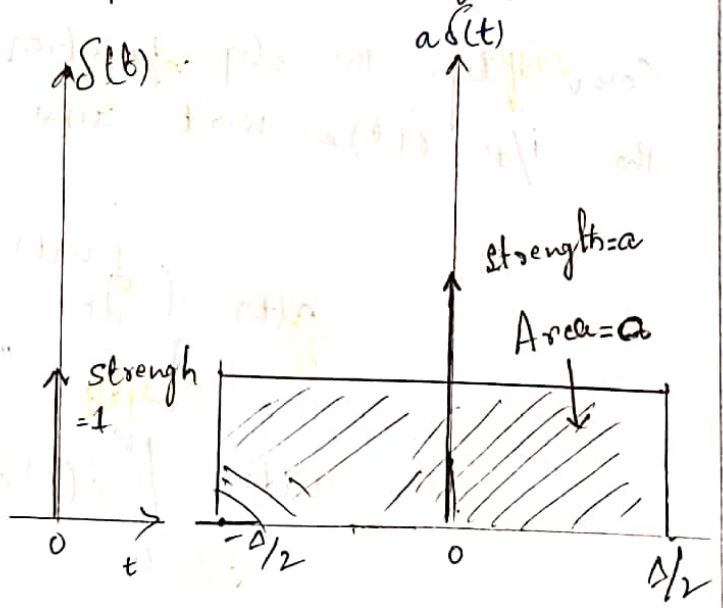 δ(t)
aδ(t)
strength=a
Area=a
strengh
=1
0
t
-Δ/2
0
Δ/2